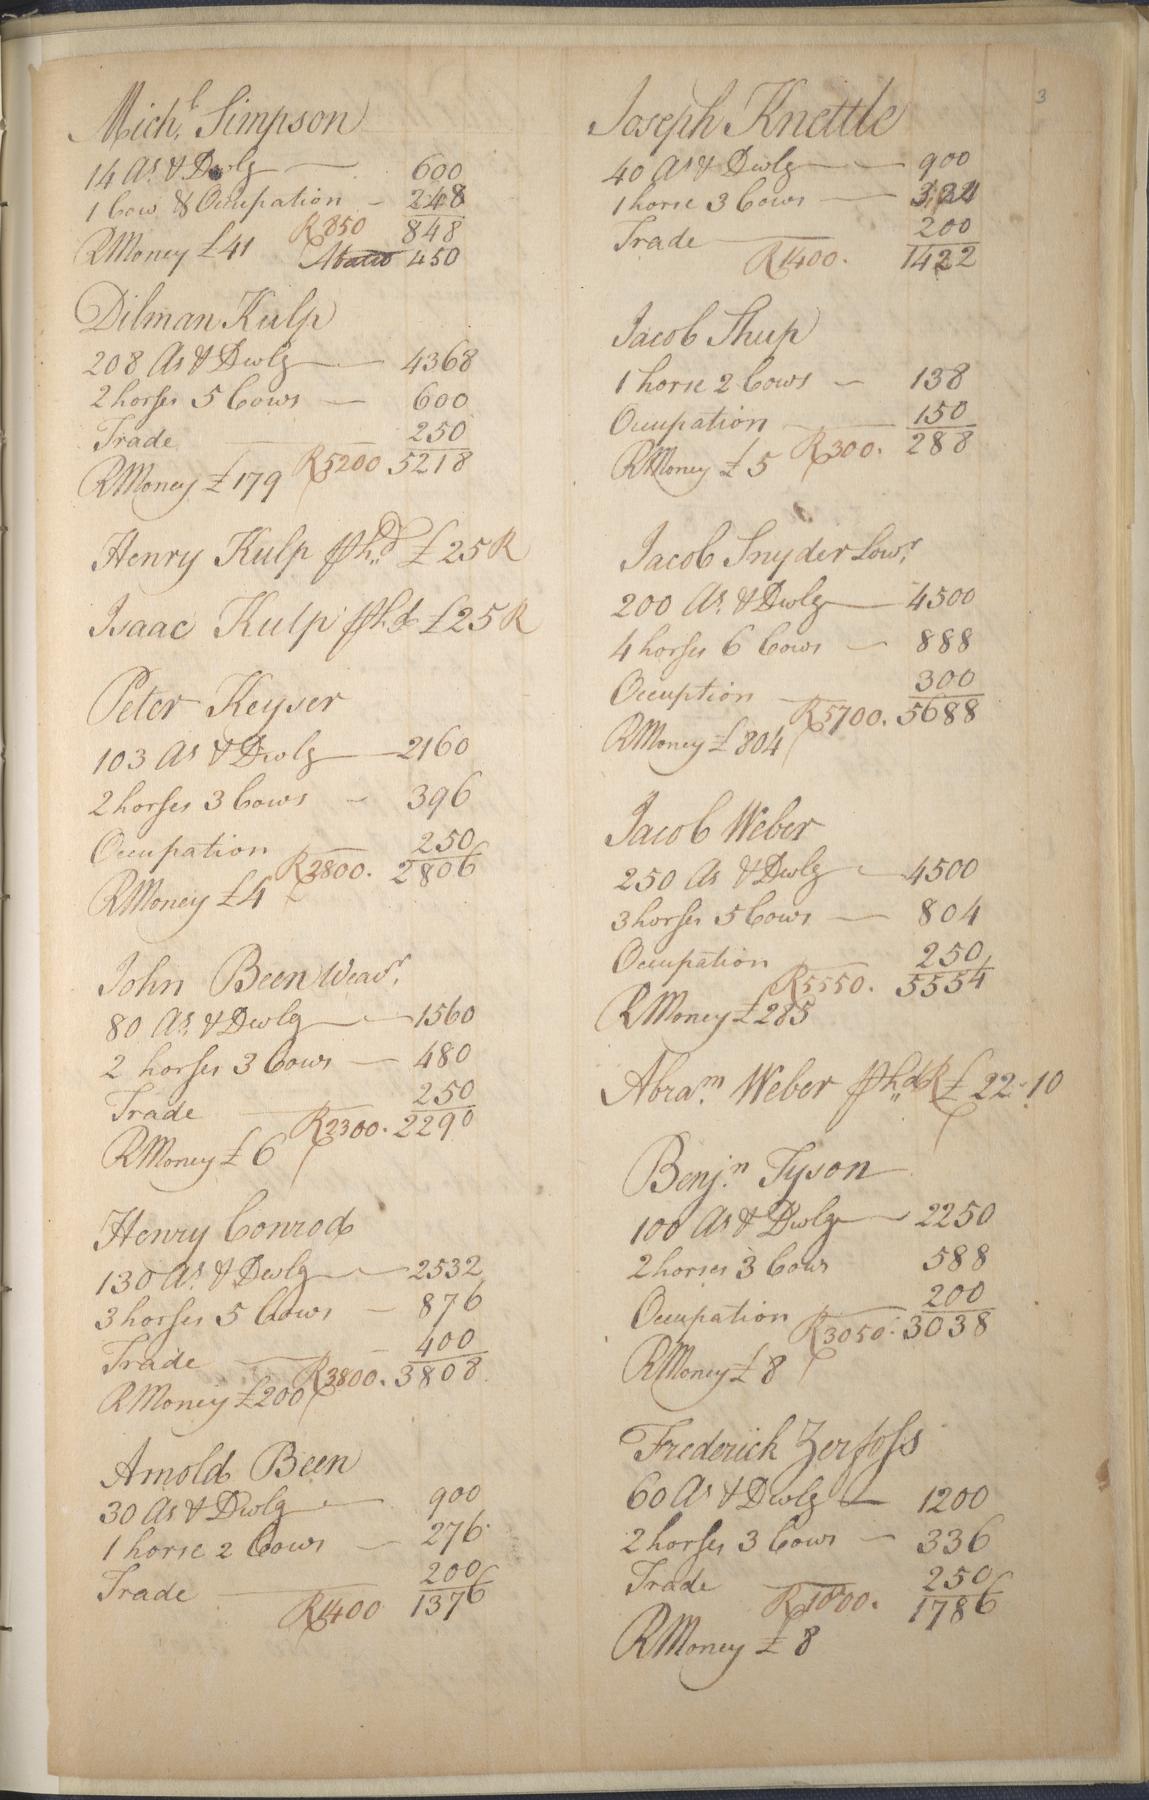 3
Michl. Simpson
14 As. & Dwlg 600
1 Cow & Occupation 248
R850 848
RMoney £41 450
Dilman Kulp
208 As & Dwlg 4368
2 horses 5 Cows 600
Trade 250
RMoney £179 R5200 5218
Henry Kulp £25 R
Isaac Kulp £25 R
Peter Keyser
103 As & Dwlg 2160
2 horses 3 Cows 396
Occupation 250
R2800. 2806
RMoney £4
John Been Weavr.
80 As. & Dwlg 1560
2 horses 3 Cows 480
Trade 250
R2300. 2290
RMoney £6
Henry Conrod
130 As. & Dwlg 2532
3 horses 5 Cows 876
Trade 400
R3800. 3808
RMoney £200
Arnold Been
30 As & Dwlg 900
1 horse 2 Cows 276
Trade 200
R1400 1376
Joseph Knettle
40 As & Dwlg 900
1 horse 3 Cows 322
Trade 200
R1400. 1422
Jacob Shup
1 horse 2 Cows 138
Occupation 150
R300. 288
RMoney £5
Jacob Snyder Lowr.
200 As. & Dwlg 4500
4 horses 6 Cows 888
Occuption 300
R5700. 5688
RMoney £804
Jacob Weber
250 As & Dwlg 4500
3 horses 5 Cows 804
Occupation 250
R5550. 5554
RMoney £285
Abram. Weber R £22-10
Benj.n Tyson
100 As & Dwlg 2250
2 horses 3 Cows 588
Occupation 200
R3050. 3038
RMoney £8
Frederick Zerfoss
60 As & Dwlg 1200
2 horses 3 Cows 336
Trade 250
R1800. 1786
RMoney £8